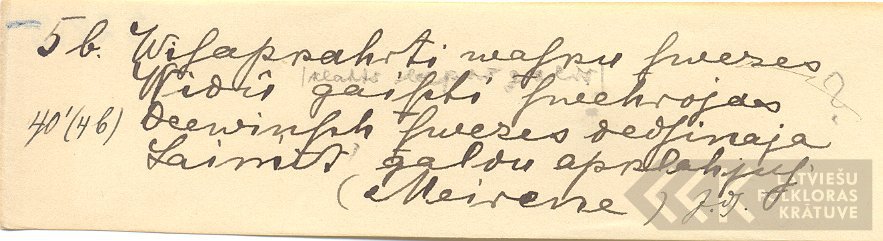 5 b. Wisapkahrti waspu swezes
Widû gaischi swehrojas
40'(4b) Deewinsch swezes dedsinaja
Laimit' galdu apklahjus
(Meirene) J. D.
LATVIEŠU
FOLKLORAS
KRĀTUVE